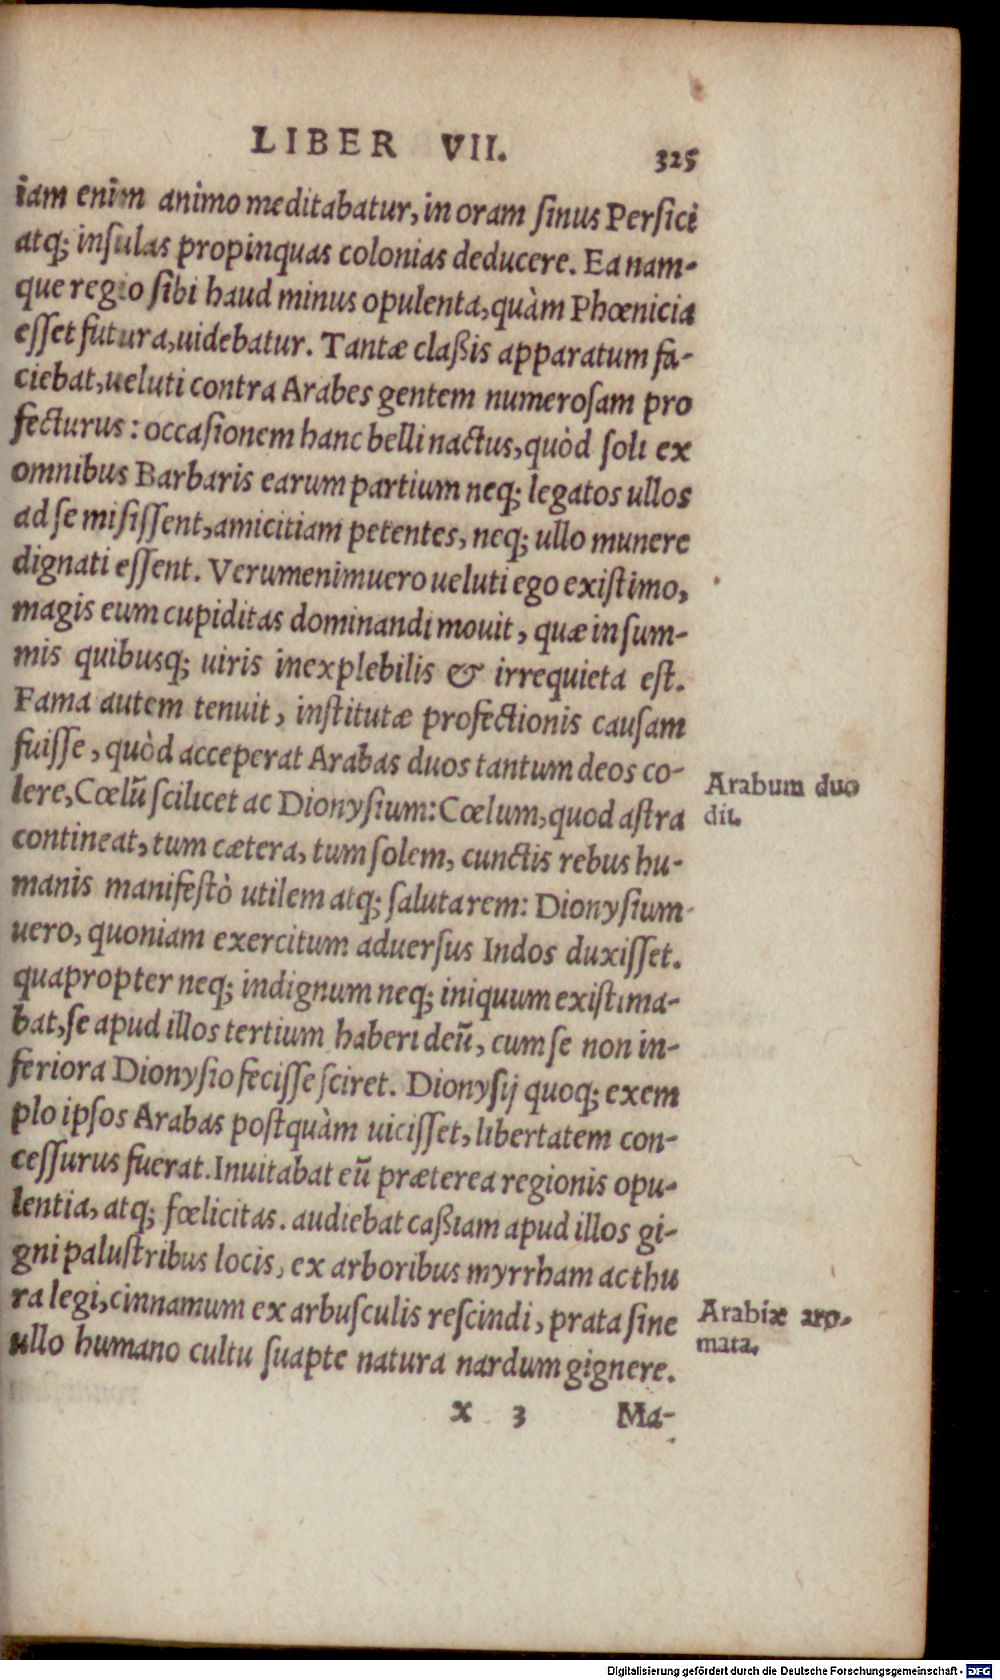 LIBER VII. 325
iam enim animo meditabatur, in oram ſinus Perſici
atq; inſulas propinquas colonias deducere. Ea nam-
que regio ſibi haud minus opulenta, quàm Phœnicia
eſſet futura, uidebatur. Tantæ claßis apparatum fa-
ciebat, ueluti contra Arabes gentem numeroſam pro
fecturus: occaſionem hanc belli nactus, quòd ſoli ex
omnibus Barbaris earum partium neq; legatos ullos
ad ſe miſiſſent, amicitiam petentes, neq; ullo munere
dignati eſſent. Verumenimuero ueluti ego exiſtimo,
magis eum cupiditas dominandi mouit, quæ in ſum-
mis quibusq; uiris inexplebilis & irrequieta eſt.
Fama autem tenuit, inſtitutæ profectionis cauſam
fuiſſe, quòd acceperat Arabas duos tantum deos co-
lere, Cœlū ſcilicet ac Dionyſium: Cœlum, quod aſtra
contineat, tum cætera, tum ſolem, cunctis rebus hu-
manis manifeſtò utilem atq; ſalutarem: Dionyſium
uero, quoniam exercitum aduerſus Indos duxiſſet.
quapropter neq; indignum neq; iniquum exiſtima-
bat, ſe apud illos tertium haberi deū, cum ſe non in-
feriora Dionyſio feciſſe ſciret. Dionyſij quoq; exem
plo ipſos Arabas poſtquàm uiciſſet, libertatem con-
ceſſurus fuerat. Inuitabat eū præterea regionis opu-
lentia, atq; fœlicitas. audiebat caßiam apud illos gi-
gni paluſtribus locis, ex arboribus myrrham ac thu
ra legi, cinnamum ex arbuſculis reſcindi, prata ſine
ullo humano cultu ſuapte natura nardum gignere.
x 3 Ma-
Arabum duo
dii.
Arabiæ aro-
mata.
Digitalisierung gefördert durch die Deutsche Forschungsgemeinschaft - DFG